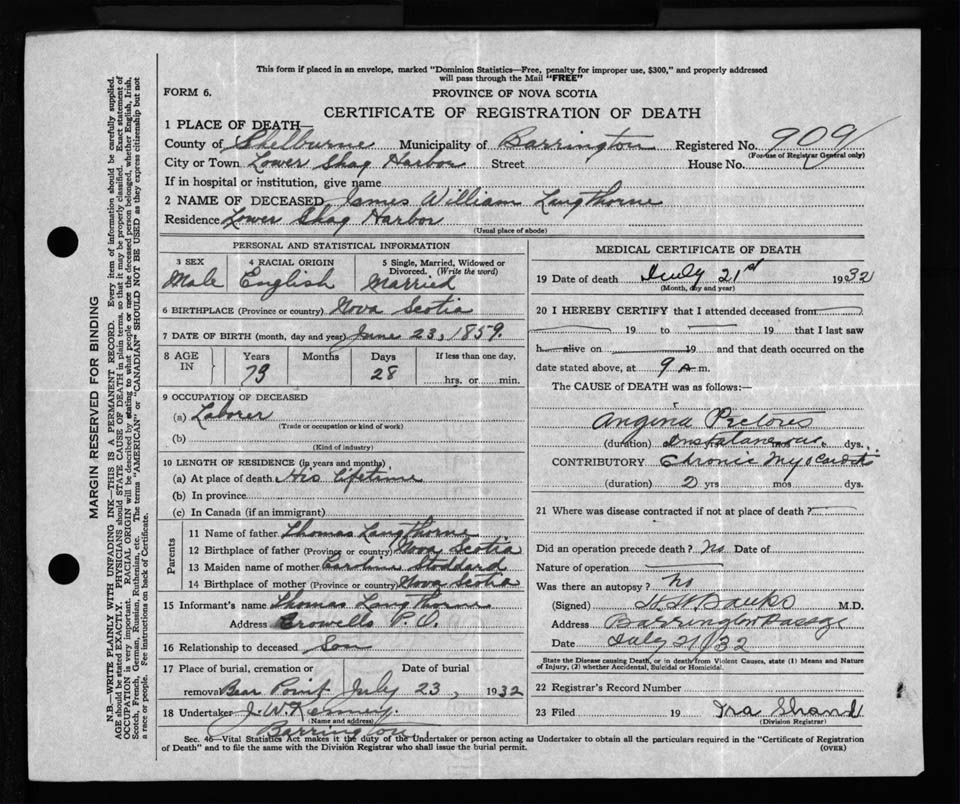 This form if placed in an envelope, marked "Dominion Statistics—Free, penalty for improper use, $300," and properly addressed
will pass through the Mail "FREE"
FORM 6.
PROVINCE OF NOVA SCOTIA
CERTIFICATE OF REGISTRATION OF DEATH
1 PLACE OF DEATH—
County of Shelburne Municipality of Barrington Registered No. 909
(For use of Registrar General only)
City or Town Lower Shag Harbor Street House No.
If in hospital or institution, give name
2 NAME OF DECEASED James William Langthorne
Residence Lower Shag Harbor
(Usual place of abode)
PERSONAL AND STATISTICAL INFORMATION
3 SEX 4 RACIAL ORIGIN 5 Single, Married, Widowed or
Divorced. (Write the word)
Male English Married
6 BIRTHPLACE (Province or country) Nova Scotia
7 DATE OF BIRTH (month, day and year) June 23, 1859.
8 AGE IN Years Months Days If less than one day,
73 28 hrs. or min.
9 OCCUPATION OF DECEASED
(a) Laborer
(Trade or occupation or kind of work)
(b)
(Kind of industry)
10 LENGTH OF RESIDENCE (in years and months)
(a) At place of death His Lifetime
(b) In province
(c) In Canada (if an immigrant)
Parents
11 Name of father Thomas Langthorne
12 Birthplace of father (Province or country) Nova Scotia
13 Maiden name of mother Caroline Stoddard
14 Birthplace of mother (Province or country) Nova Scotia
15 Informant's name Thomas Langthorne
Address Crowells P.O.
16 Relationship to deceased Son
17 Place of burial, cremation or Date of burial
removal Bear Point July 23, 1932
18 Undertaker J. W.
(Name and address)
Barrington
MEDICAL CERTIFICATE OF DEATH
19 Date of death July 21st 1932
(Month, day and year)
20 I HEREBY CERTIFY that I attended deceased from
19 to 19 that I last saw
h alive on 19 and that death occurred on the
date stated above, at 9 A m.
The CAUSE OF DEATH was as follows:—
Angina Pectoris
(duration) Instataneous dys.
CONTRIBUTORY Chronic Myocardit
(duration) 2 yrs mos dys.
21 Where was disease contracted if not at place of death?
Did an operation precede death? No Date of
Nature of operation
Was there an autopsy? No
(Signed) Banks M.D.
Address Barrington Passage
Date July 21/32
State the Disease causing Death, or in death from Violent Causes, state (1) Means and Nature
of Injury, (2) whether Accidental, Suicidal or Homicidal.
22 Registrar's Record Number
23 Filed 19 Ira Shand
(Division Registrar)
Sec. 46—Vital Statistics Act makes it the duty of the Undertaker or person acting as Undertaker to obtain all the particulars required in the "Certificate of Registration
of Death" and to file the same with the Division Registrar who shall issue the burial permit.
(OVER)
MARGIN RESERVED FOR BINDING
N.B.—WRITE PLAINLY WITH UNFADING INK—THIS IS A PERMANENT RECORD. Every item of information should be carefully supplied.
AGE should be stated EXACTLY. PHYSICIANS should STATE CAUSE OF DEATH in plain terms, so that it may be properly classified. Exact statement of
OCCUPATION is very important. RACIAL ORIGIN will be described by stating to what people or race the deceased person belonged, whether English, Irish,
Scotch, French, German, Russian, Ruthenian, etc. The terms "AMERICAN" or "CANADIAN" SHOULD NOT BE USED as they express citizenship but not
a race or people. See instructions on back of Certificate.